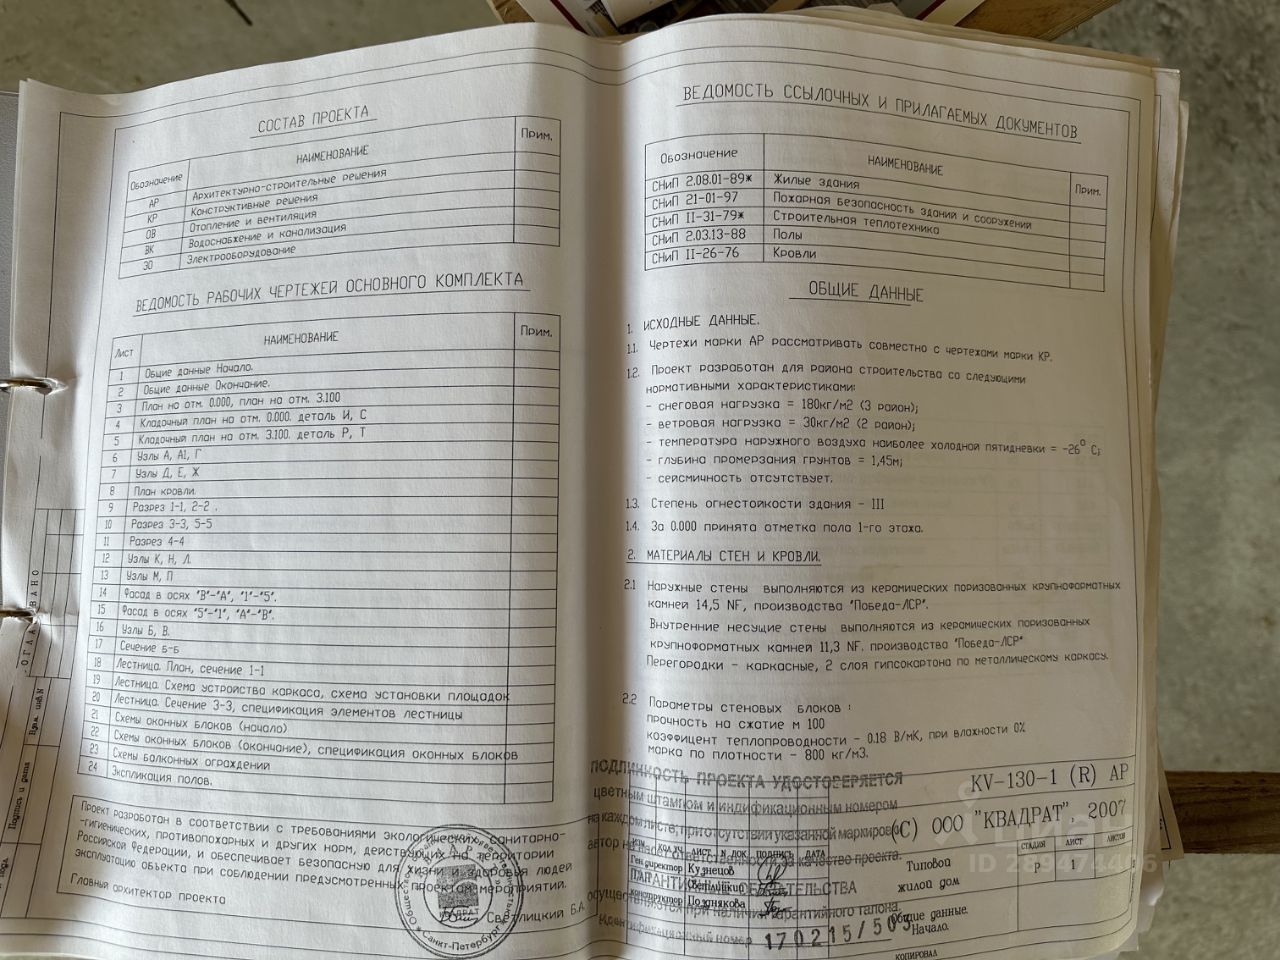 СОСТАВ ПРОЕКТА
Обозначение НАИМЕНОВАНИЕ Прим.
АР Архитектурно-строительные решения
КР Конструктивные решения
ОВ Отопление и вентиляция
ВК Водоснабжение и канализация
ЭО Электрооборудование
ВЕДОМОСТЬ РАБОЧИХ ЧЕРТЕЖЕЙ ОСНОВНОГО КОМПЛЕКТА
Лист НАИМЕНОВАНИЕ Прим.
1 Общие данные Начало.
2 Общие данные Окончание.
3 План на отм. 0.000, план на отм. 3.100
4 Кладочный план на отм. 0.000. деталь И, С
5 Кладочный план на отм. 3.100. деталь Р, Т
6 Узлы А, А1, Г
7 Узлы Д, Е, Ж
8 План кровли.
9 Разрез 1-1, 2-2 .
10 Разрез 3-3, 5-5
11 Разрез 4-4
12 Узлы К, Н, Л.
13 Узлы М, П
14 Фасад в осях "В"-"А", "1"-"5".
15 Фасад в осях "5"-"1", "А"-"В".
16 Узлы Б, В.
17 Сечение Б-Б
18 Лестница. План, сечение 1-1
19 Лестница. Схема устройства каркаса, схема установки площадок
20 Лестница. Сечение 3-3, спецификация элементов лестницы
21 Схемы оконных блоков (начало)
22 Схемы оконных блоков (окончание), спецификация оконных блоков
23 Схемы балконных ограждений
24 Экспликация полов.
Проект разработан в соответствии с требованиями экологических, санитарно-
-гигиенических, противопожарных и других норм, действующих на территории
Российской Федерации, и обеспечивает безопасную для жизни и здоровья людей
эксплуатацию объекта при соблюдении предусмотренных проектом мероприятий.
Главный архитектор проекта Светлицкий Б.А.
КВАДРАТ
Санкт-Петербург
ВЕДОМОСТЬ ССЫЛОЧНЫХ И ПРИЛАГАЕМЫХ ДОКУМЕНТОВ
Обозначение НАИМЕНОВАНИЕ Прим.
СНиП 2.08.01-89* Жилые здания
СНиП 21-01-97 Пожарная безопасность зданий и сооружений
СНиП II-31-79* Строительная теплотехника
СНиП 2.03.13-88 Полы
СНиП II-26-76 Кровли
ОБЩИЕ ДАННЫЕ
1. ИСХОДНЫЕ ДАННЫЕ.
1.1. Чертежи марки АР рассматривать совместно с чертежами марки КР.
1.2. Проект разработан для района строительства со следующими
нормативными характеристиками:
- снеговая нагрузка = 180кг/м2 (3 район);
- ветровая нагрузка = 30кг/м2 (2 район);
- температура наружного воздуха наиболее холодной пятидневки = -26° С;
- глубина промерзания грунтов = 1,45м;
- сейсмичность отсутствует.
1.3. Степень огнестойкости здания - III
1.4. За 0.000 принята отметка пола 1-го этажа.
2. МАТЕРИАЛЫ СТЕН И КРОВЛИ.
2.1 Наружные стены выполняются из керамических поризованных крупноформатных
камней 14,5 NF, производства "Победа-ЛСР".
Внутренние несущие стены выполняются из керамических поризованных
крупноформатных камней 11,3 NF. производства "Победа-ЛСР"
Перегородки - каркасные, 2 слоя гипсокартона по металлическому каркасу.
2.2 Параметры стеновых блоков :
прочность на сжатие м 100
коэффицент теплопроводности - 0.18 В/мК, при влажности 0%
марка по плотности - 800 кг/м3.
ПОДЛИННОСТЬ ПРОЕКТА УДОСТОВЕРЯЕТСЯ
цветным штампом и индификационным номером
на каждом листе, при отсутствии указанной маркировки
автор не несет ответственность за качество проекта.
ГАРАНТИЙНЫЕ ОБЯЗАТЕЛЬСТВА
осуществляются при наличии гарантийного талона.
Идентификационный номер 170215/503
KV-130-1 (R) АР
(С) ООО "КВАДРАТ", 2007
ИЗМ КОЛ.УЧ ЛИСТ N ДОК ПОДПИСЬ ДАТА
Ген.директор Кузнецов
Светлицкий
конструктор Позднякова
Типовой
жилой дом
СТАДИЯ ЛИСТ ЛИСТОВ
1
Общие данные.
Начало.
КОПИРОВАЛ
Циан
Взам. инв.N
Подпись и дата